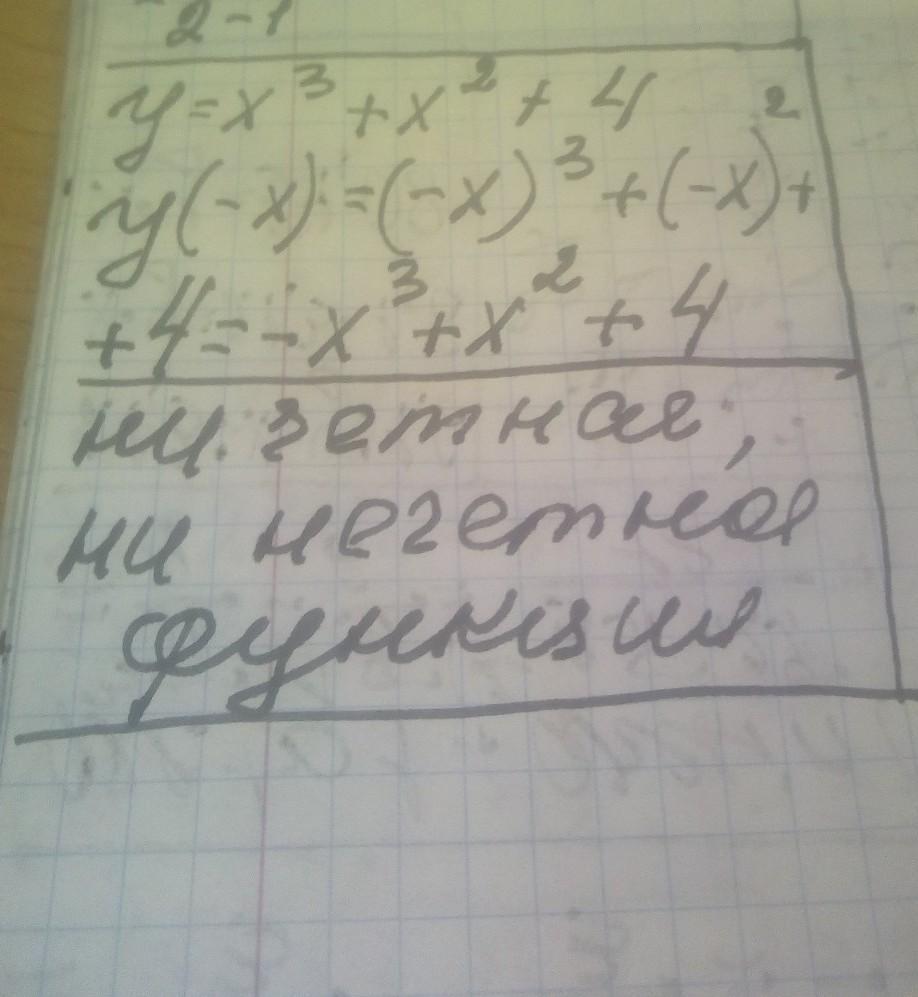 2-1
y=x³+x²+4
y(-x)=(-x)³+(-x)²+
+4=-x³+x²+4
ни четная,
ни нечетная
функция